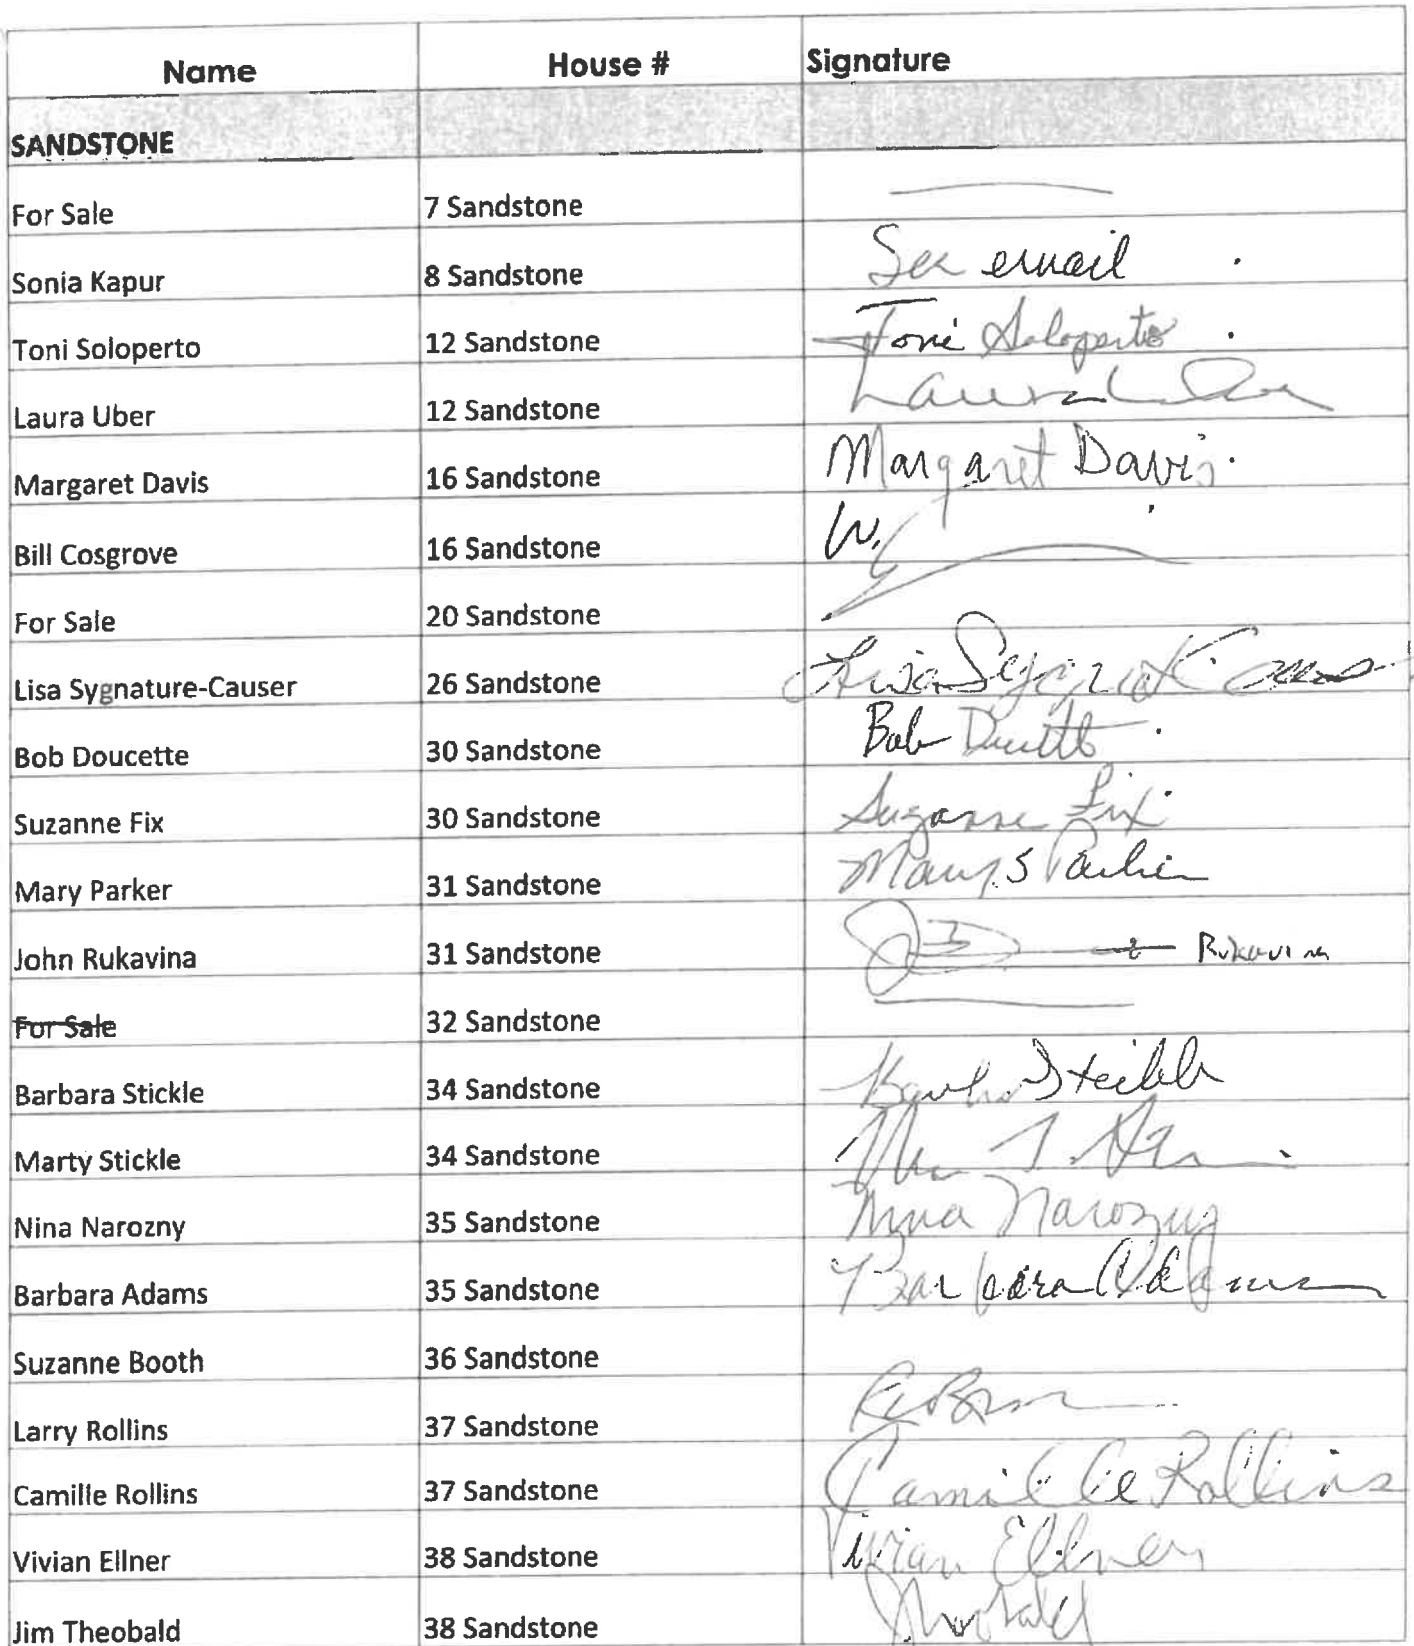 Name House # Signature
SANDSTONE
For Sale 7 Sandstone
Sonia Kapur 8 Sandstone See email
Toni Soloperto 12 Sandstone Toni Soloperto
Laura Uber 12 Sandstone Laura Uber
Margaret Davis 16 Sandstone Margaret Davis
Bill Cosgrove 16 Sandstone W.
For Sale 20 Sandstone
Lisa Sygnature-Causer 26 Sandstone Lisa
Bob Doucette 30 Sandstone Bob
Suzanne Fix 30 Sandstone Suzanne Fix
Mary Parker 31 Sandstone Mary S Parker
John Rukavina 31 Sandstone Rukavina
For Sale 32 Sandstone
Barbara Stickle 34 Sandstone
Marty Stickle 34 Sandstone
Nina Narozny 35 Sandstone Nina Narozny
Barbara Adams 35 Sandstone Barbara Adams
Suzanne Booth 36 Sandstone
Larry Rollins 37 Sandstone
Camille Rollins 37 Sandstone Camille Rollins
Vivian Ellner 38 Sandstone Vivian Ellner
Jim Theobald 38 Sandstone JTheobald